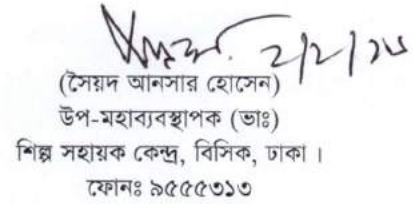 ২/২/১৬
(সৈয়দ আনসার হোসেন)
উপ-মহাব্যবস্থাপক (ভাঃ)
শিল্প সহায়ক কেন্দ্র, বিসিক, ঢাকা ।
ফোনঃ ৯৫৫৫৩১৩